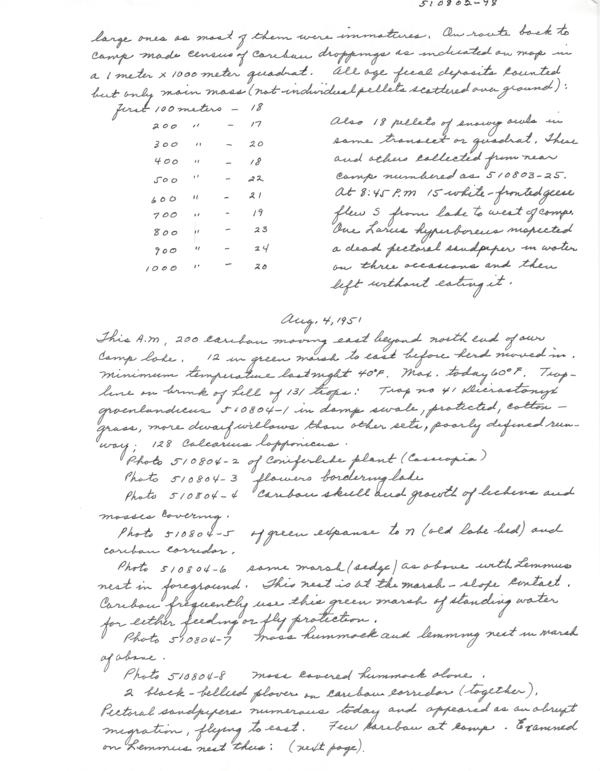 510802-98
large ones as most of them were immatures. On route back to
camp made census of caribou droppings as indicated on map in
a 1 meter x 1000 meter quadrat. All age fecal deposits counted
but only main mass (not individual pellets scattered over ground):
First 100 meters - 18
200 " - 17
300 " - 20
400 " - 18
500 " - 22
600 " - 21
700 " - 19
800 " - 23
900 " - 24
1000 " - 20
Also 18 pellets of snowy owls in
same transect or quadrat. These
and others collected from near
camp numbered as 510803-25.
At 8:45 P.M 15 white-fronted geese
flew S from lake to west of camp.
One Larus hyperboreus inspected
a dead pectoral sandpiper in water
on three occasions and then
left without eating it.
Aug. 4, 1951
This A.M, 200 caribou moving east beyond north end of our
camp lake. 12 in green marsh to east before herd moved in.
Minimum temperature last night 40°F. Max. today 60°F. Trap-
line on brink of hill of 131 traps: Trap no 41 Dicrostonyx
groenlandicus 510804-1 in damp swale, protected, cotton-
grass, more dwarf willows than other sets, poorly defined run-
way; 128 Calcarius lapponicus.
Photo 510804-2 of Coniferlike plant (Cassiopia)
Photo 510804-3 flowers bordering lake
Photo 510804-4 Caribou skull and growth of lichens and
mosses covering.
Photo 510804-5 of green expanse to N (old lake bed) and
caribou corridor.
Photo 510804-6 same marsh (sedge) as above with Lemmus
nest in foreground. This nest is at the marsh-slope contact.
Caribou frequently use this green marsh of standing water
for either feeding or fly protection.
Photo 510804-7 moss hummock and lemming nest in marsh
of above.
Photo 510804-8 moss covered hummock alone.
2 black-bellied plover on caribou corridor (together).
Pectoral sandpipers numerous today and appeared as an abrupt
migration, flying to east. Few caribou at camp. Examined
on Lemmus nest thus: (next page).